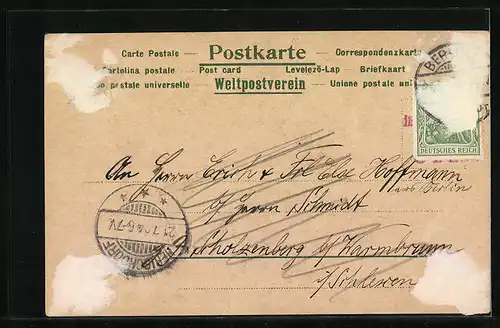 Carte Postale — Postkarte — Correspondenzkarte
Cartolina postale — Post card — Levelező-Lap — Briefkaart
postale universelle — Weltpostverein — Unione postale uni
DEUTSCHES REICH
An Herrn Erich & Frl Else Hoffmann
aus Berlin
b/ Herrn Schmidt
b/ Warmbrunn
i/ Schlesien